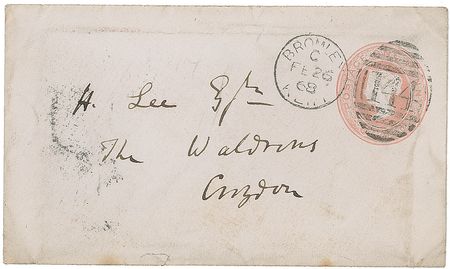 BROMLEY
C
FE 26
68
KENT
144
H. Lee Esqre
The Waldrons
Croydon